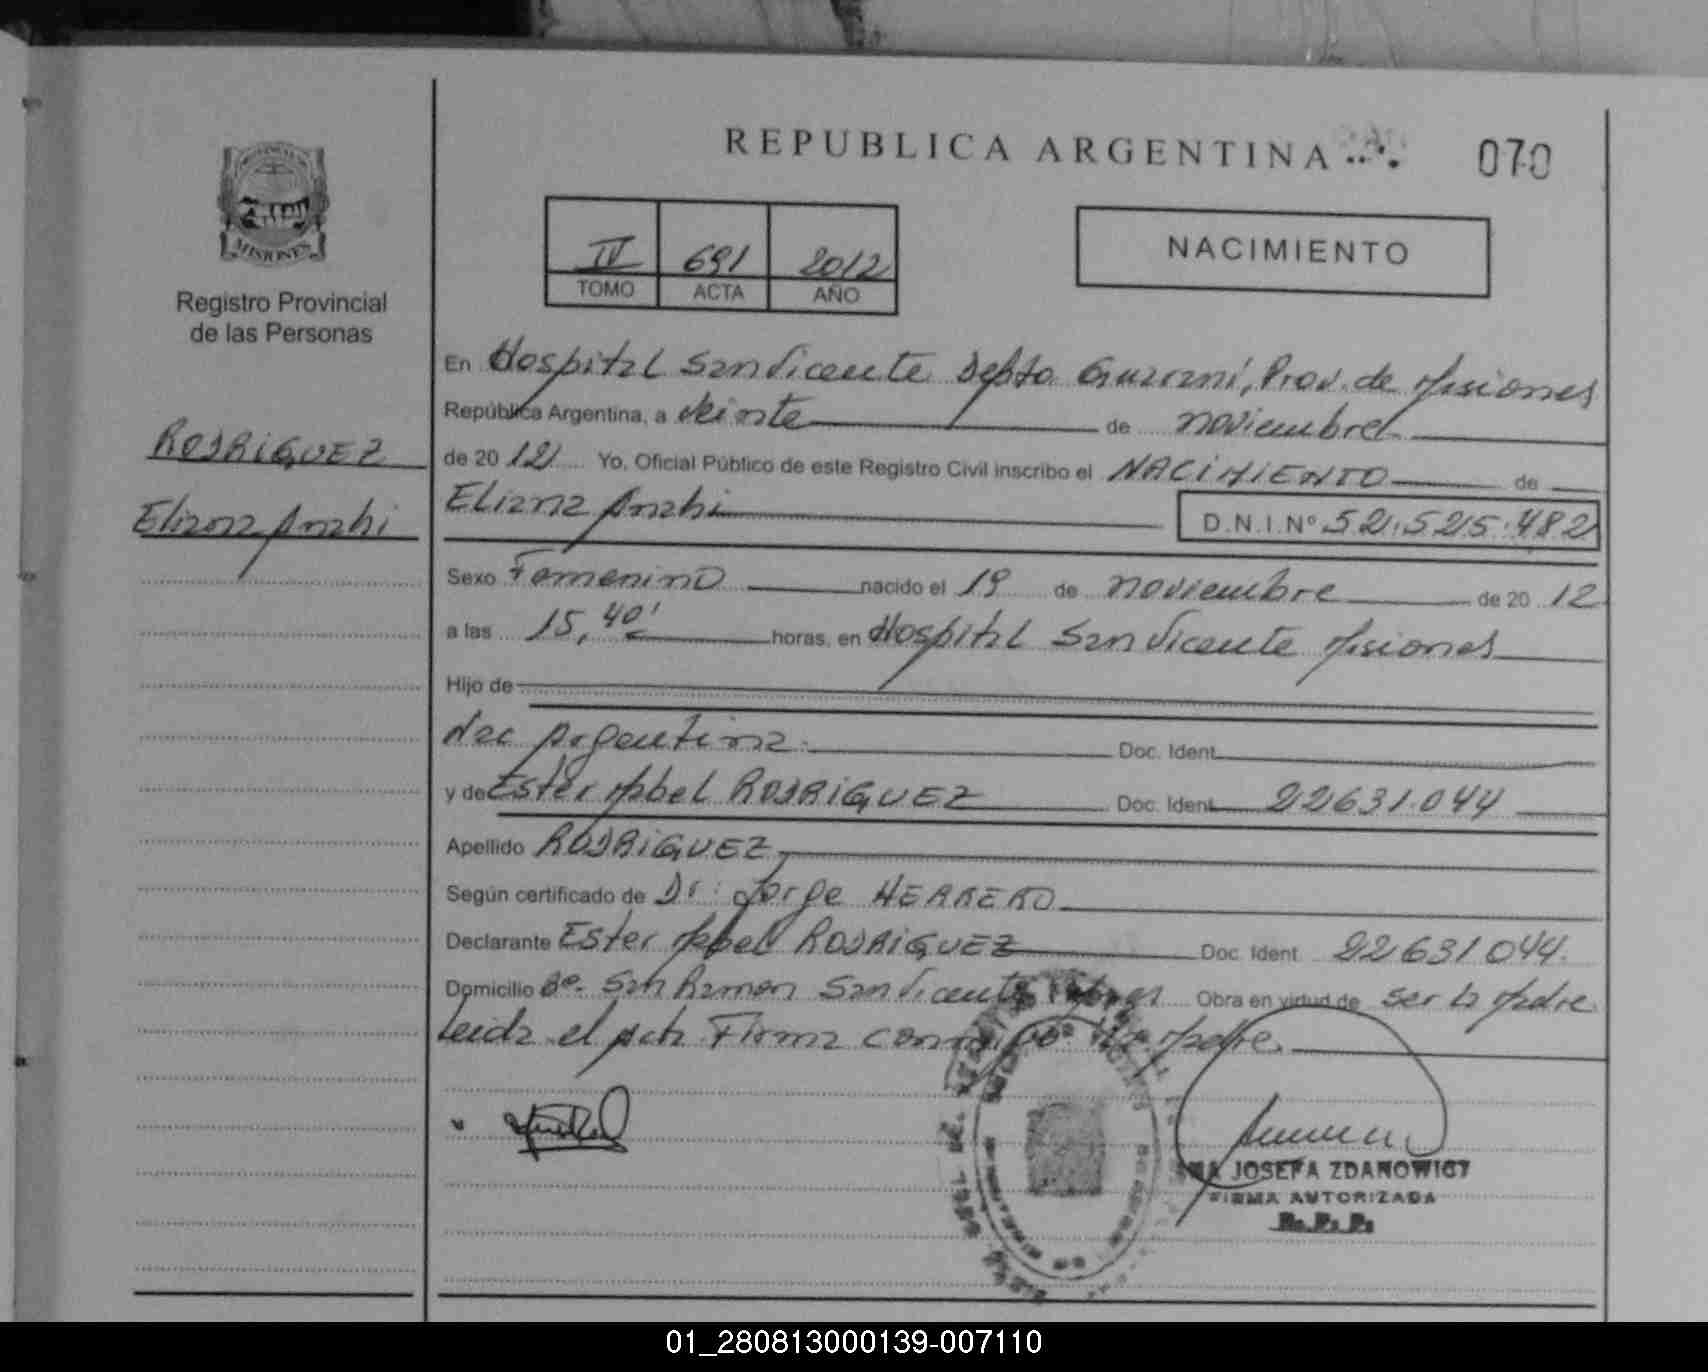 REPUBLICA ARGENTINA
070
MISIONES
Registro Provincial
de las Personas
IV 691 2012
TOMO ACTA AÑO
NACIMIENTO
RODRIGUEZ
Eliana Anahi
En Hospital San Vicente Depto Guarani, Prov. de Misiones
República Argentina, a veinte de noviembre
de 20 12 Yo, Oficial Público de este Registro Civil inscribo el NACIMIENTO de
Eliana Anahi D.N.I.Nº 52.525.482
Sexo Femenino nacido el 19 de noviembre de 20 12
a las 15,40' horas, en Hospital San Vicente Misiones
Hijo de
Nac Argentina. Doc. Ident.
y de Ester Mabel RODRIGUEZ Doc. Ident. 22631.044
Apellido RODRIGUEZ
Según certificado de Dr: Jorge HERRERO
Declarante Ester Mabel RODRIGUEZ Doc. Ident 22631044.
Domicilio Bº. San Ramon San Vicente Obra en virtud de ser la Madre
Leida el Acta Firma la Madre.
JOSEFA ZDANOWICZ
FIRMA AUTORIZADA
R.P.P.
01_280813000139-007110